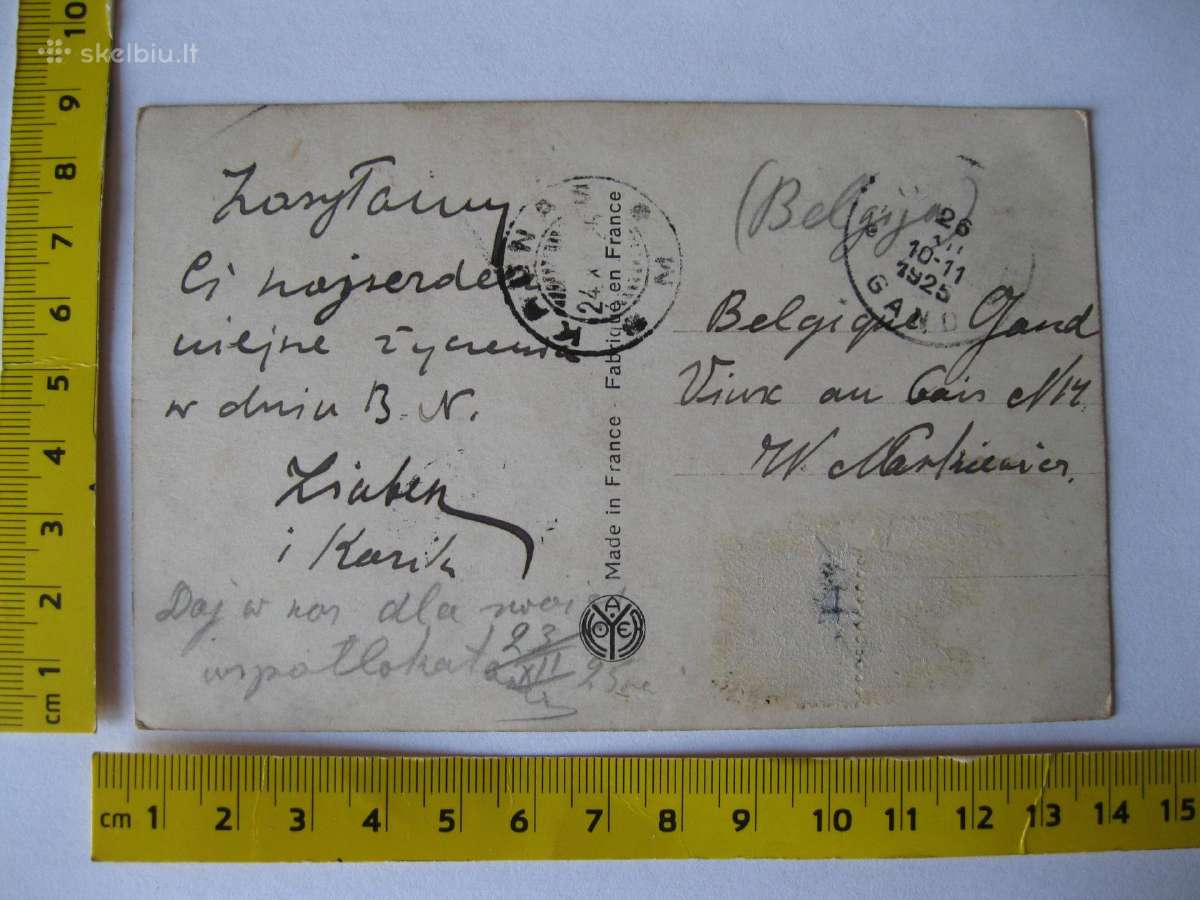 skelbiu.lt
Zasyłamy
Ci najserdecz
niejsze życzenia
w dniu B. N.
i Kazik
Daj w nos dla
współlokat
23/XII 25
KAUNAS
24
Made in France - Fabriqué en France
(Belgija)
26
XII
10-11
1925
GAND
Belgique Gand
Vieux au Bois N 14
W. Markiewicz.
10
9
8
7
6
5
4
3
2
1
cm
cm 1 2 3 4 5 6 7 8 9 10 11 12 13 14 15